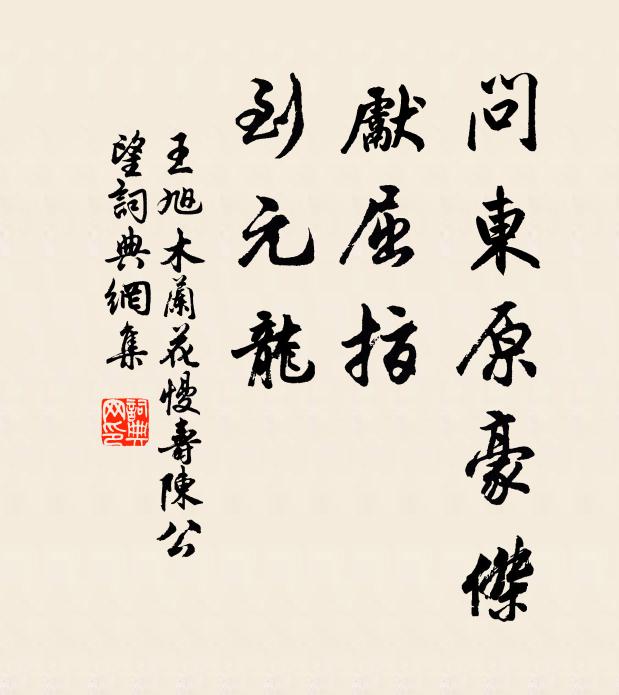 問東原豪傑
獻屈指
到元龍
王旭木蘭花慢壽陳公
望詞典網集
詞典
网印